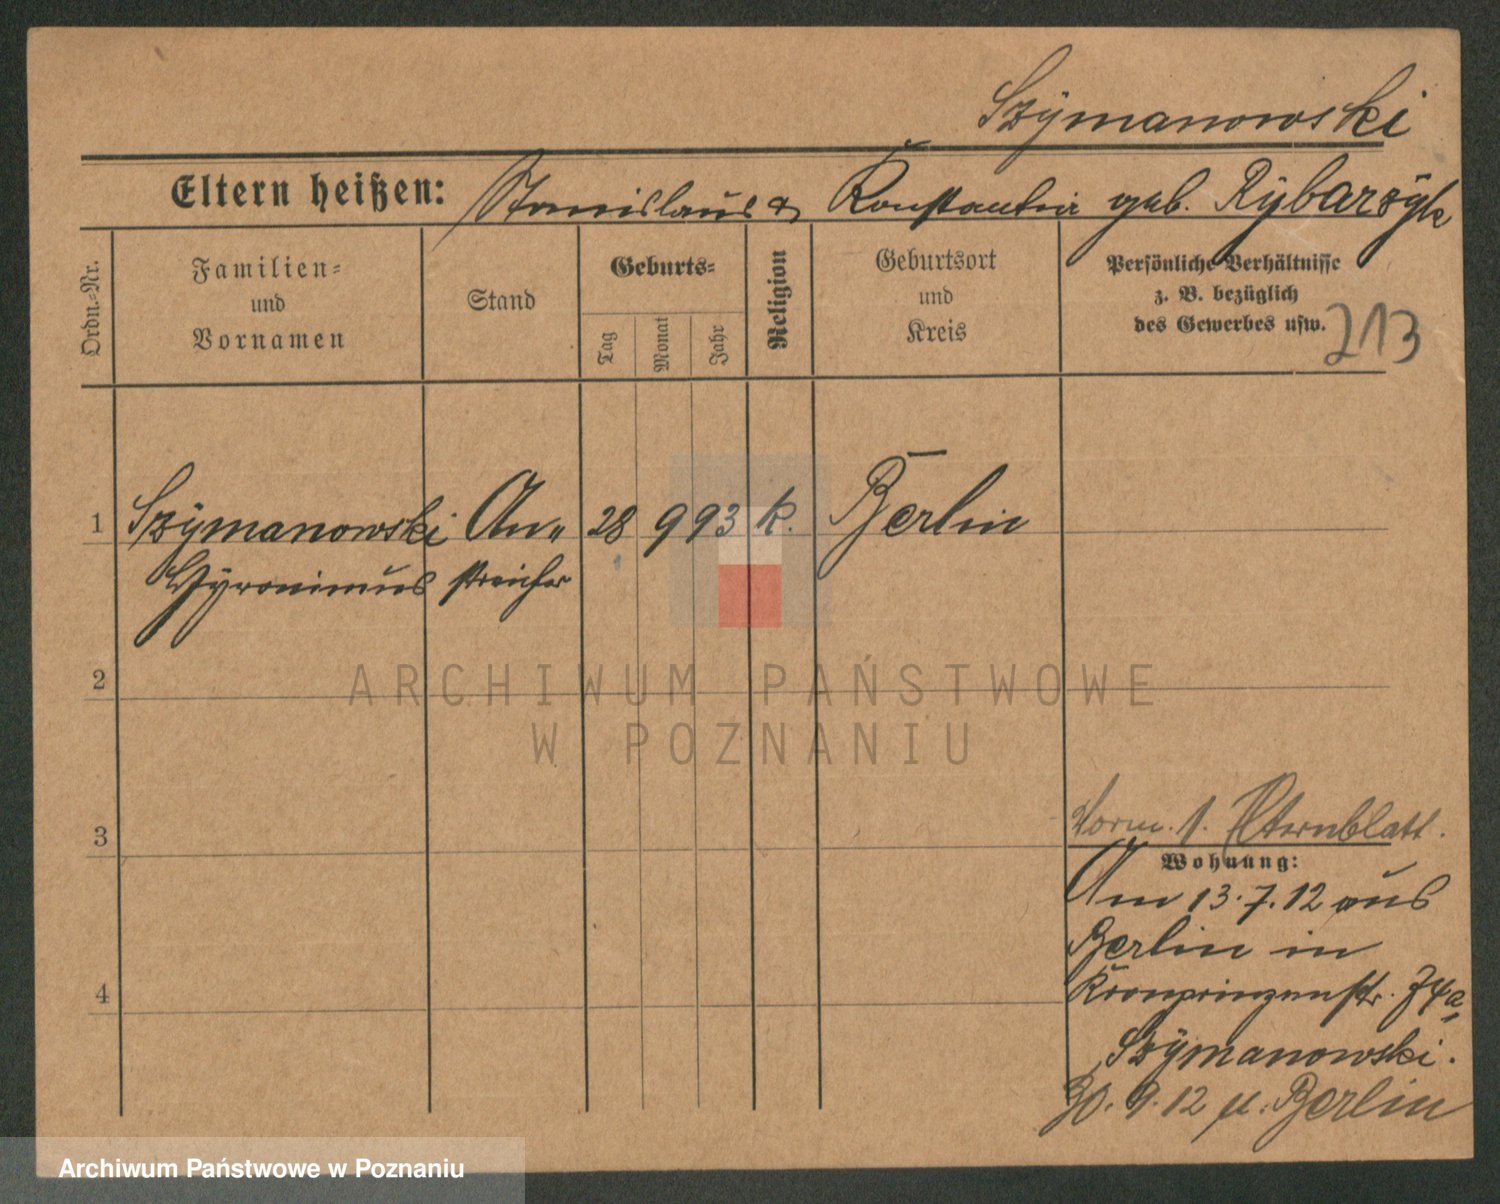 Szymanowski
Eltern heißen: Stanislaus & Konstantia geb. Rybarzyk
Ordn.-Nr.
Familien-
und
Vornamen
Stand
Geburts-
Tag
Monat
Jahr
Religion
Geburtsort
und
Kreis
Persönliche Verhältnisse
z. B. bezüglich
des Gewerbes usw.
213
1 Szymanowski An- 28 9 93 k. Berlin
Hyronimus streicher
2
3
4
1. Elternblatt.
Wohnung:
Am 13.7.12 aus
Berlin in
Kronprinzenstr. 74a
Szymanowski.
30.9.12 n. Berlin
ARCHIWUM PAŃSTWOWE
W POZNANIU
Archiwum Państwowe w Poznaniu